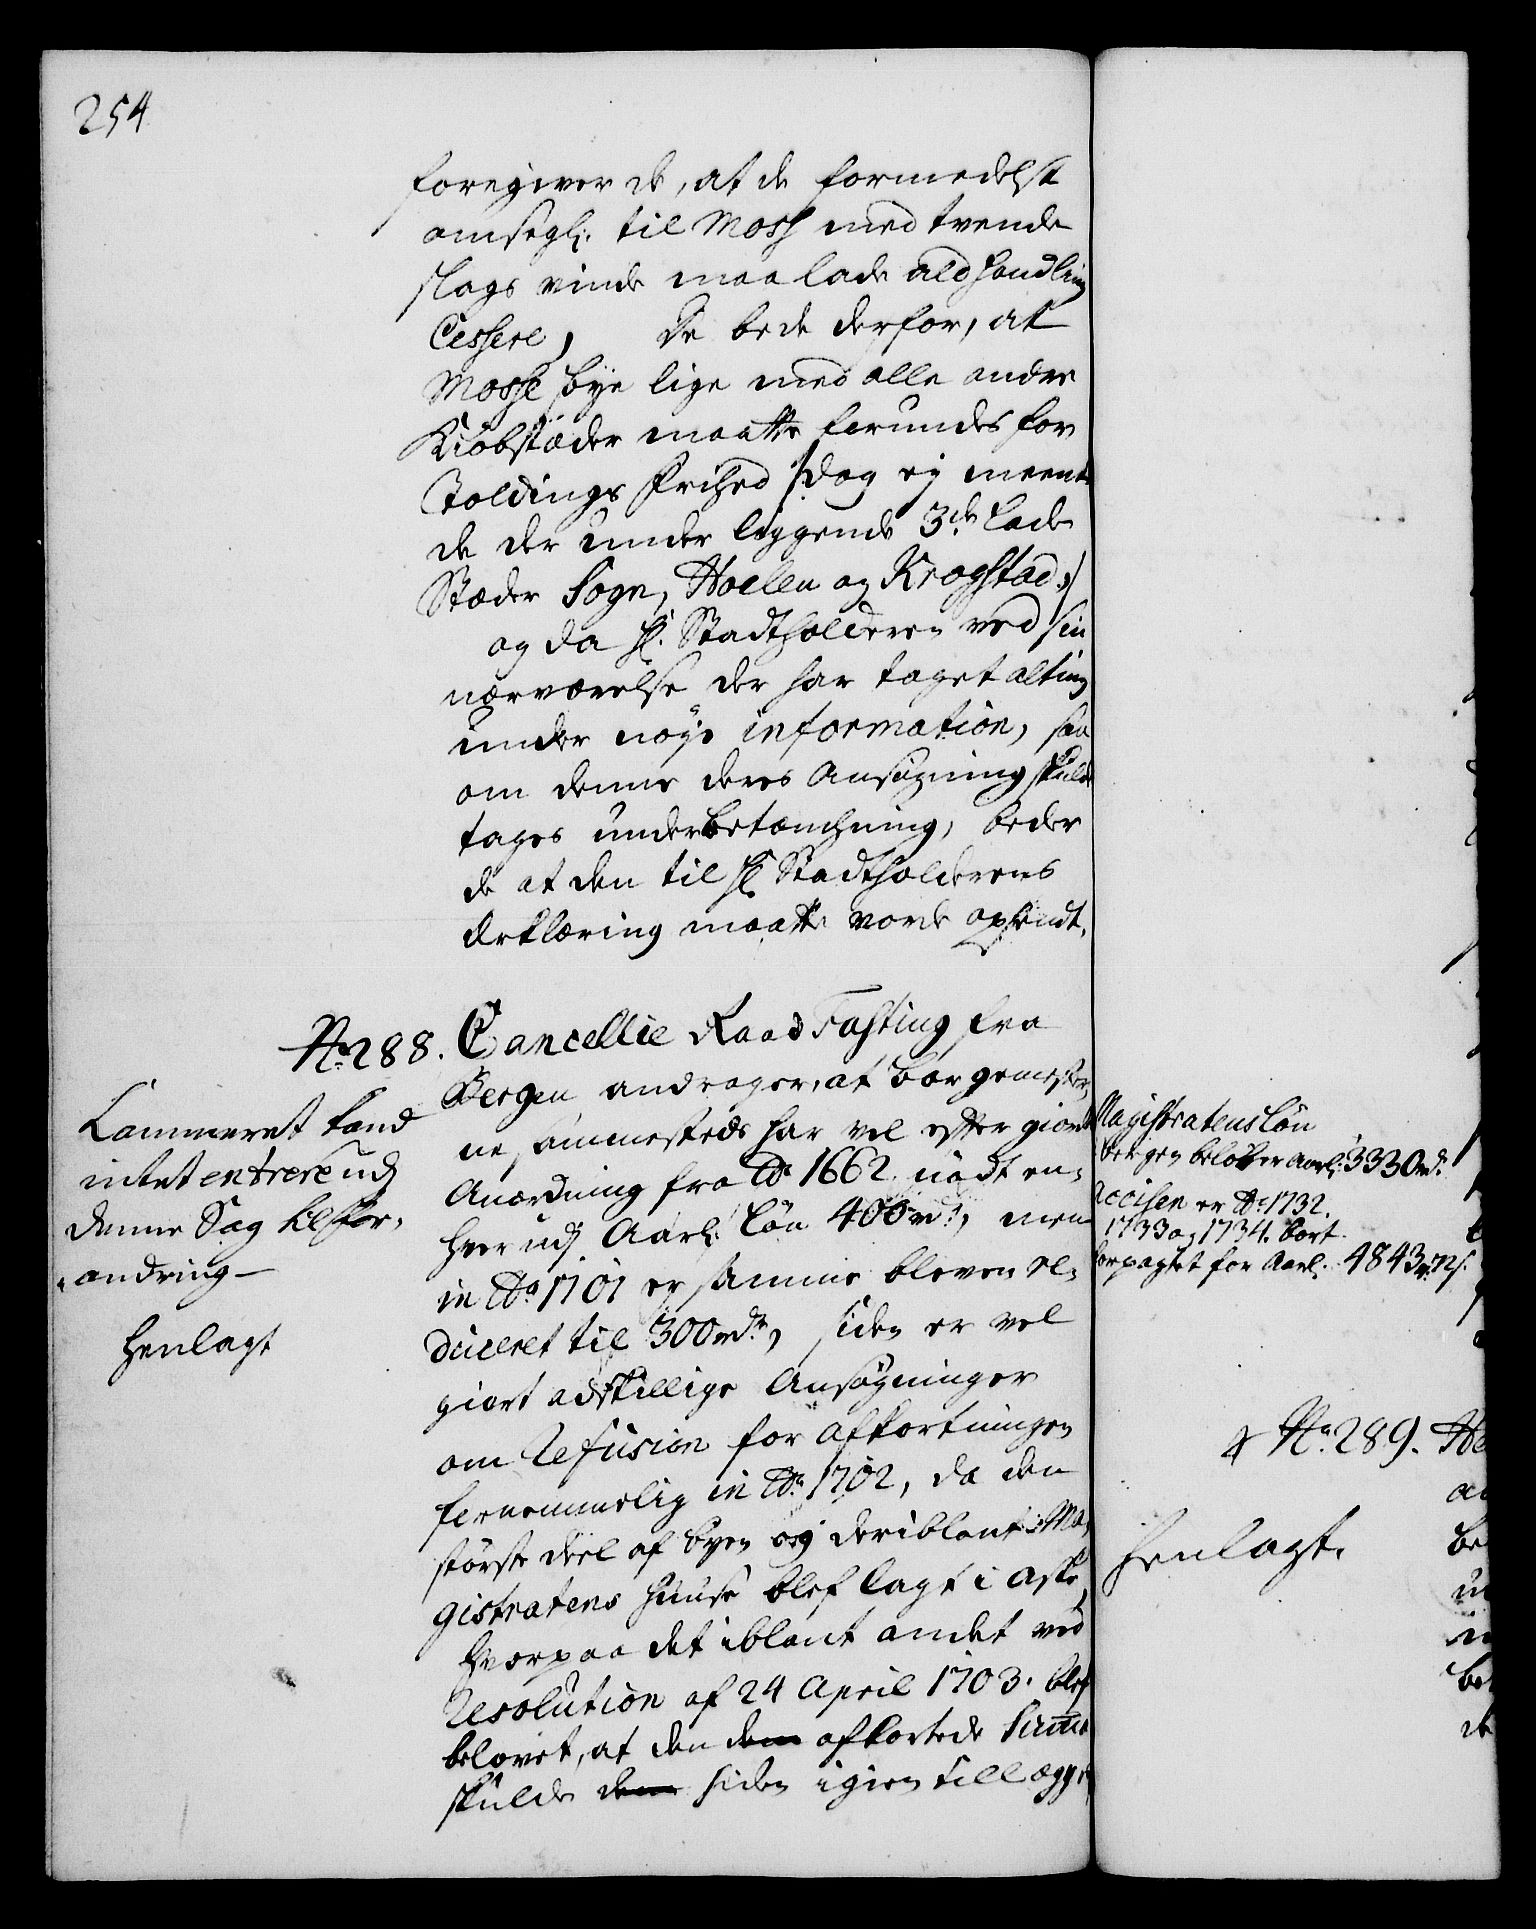 254
foregiver de, at de formedelst
omsegl: til Moss med tvende
slags vinde maa lade ald handling
Cessere, De bede derfor, at
Mosse bye lige med alle andre
Kiøbstæder maatte forundes for
Toldings frihed /: dog ey meente
de der under liggende 3de Lade
Stæder Sogn, Hoelen og Krogstad :/
og da H: Stadtholderen ved sin
nærværelse der har taget alting
under nøye information, saa
om denne deres Ansøgning skulde
tages under betænchning, beder
de at den til H: Stadtholderens
Erklæring maatte vorde opsendt.
No 288. Cancellie Raad Fasting fra
Bergen andrager, at borgemester
ne sammesteds har vel efter giordt
Anordning fra Ao 1662 nødt en-
hver udj Aarl: Løn 400 rdr, men
in Ao 1701 er samme bleven re-
duceret til 300 rdr, siden er vel
giort adskillige Ansøgninger
om Refusion for afkortningen
fornemmelig in Ao 1702, da den
største deel af byen og deriblant Ma-
gistratens huuse blef lagt i aske,
hvorpaa det iblant andet ved
Resolution af 24 April 1703. blef
belovet, at den dem afkortede Summa
skulde dem siden igien tillægges
Cammeret kand
intet entrere udj
denne Sag til for-
andring
Henlagt
Magistratens Løn
bergen beløber Aarl: 3330 rdr
Accisen er Ao 1732.
1733 og 1734. bort
forpagtet for Aarl: 4843 rdr
No 289.
Henlagt.